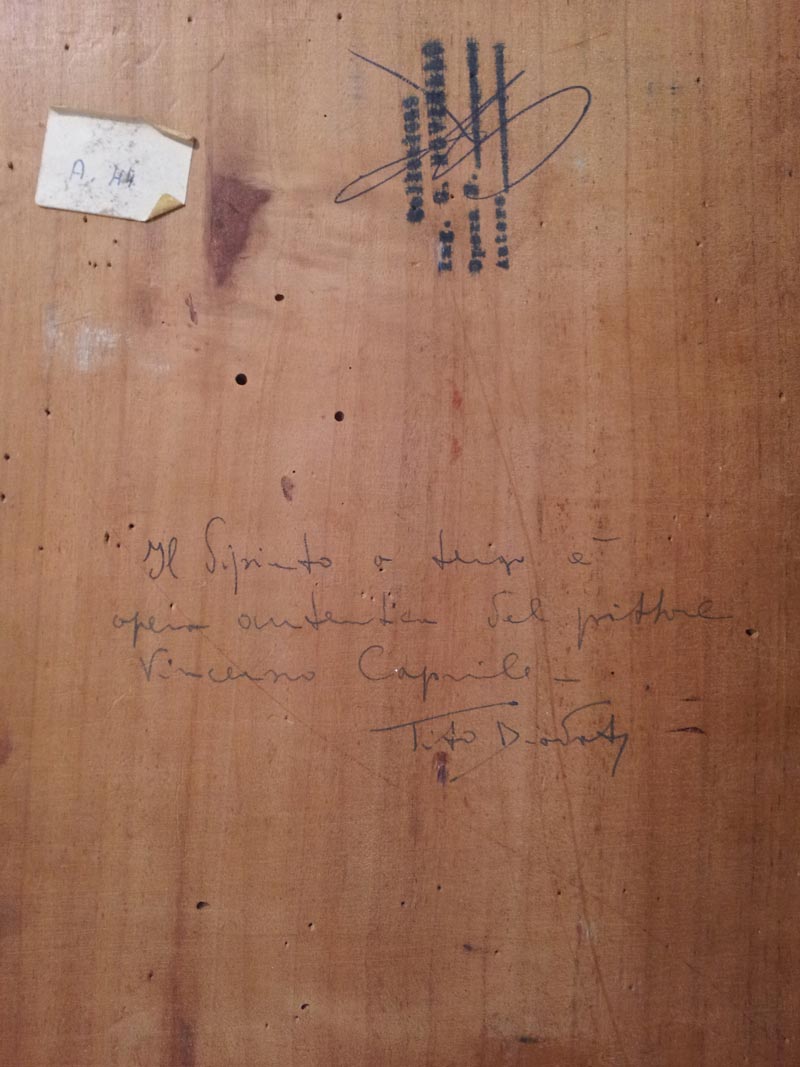 A. 44
Collezione
Ing. G.
Opera N.
Autore
Il dipinto a tergo è
opera autentica del pittore
Vincenzo Caprile —
Tito Diodati